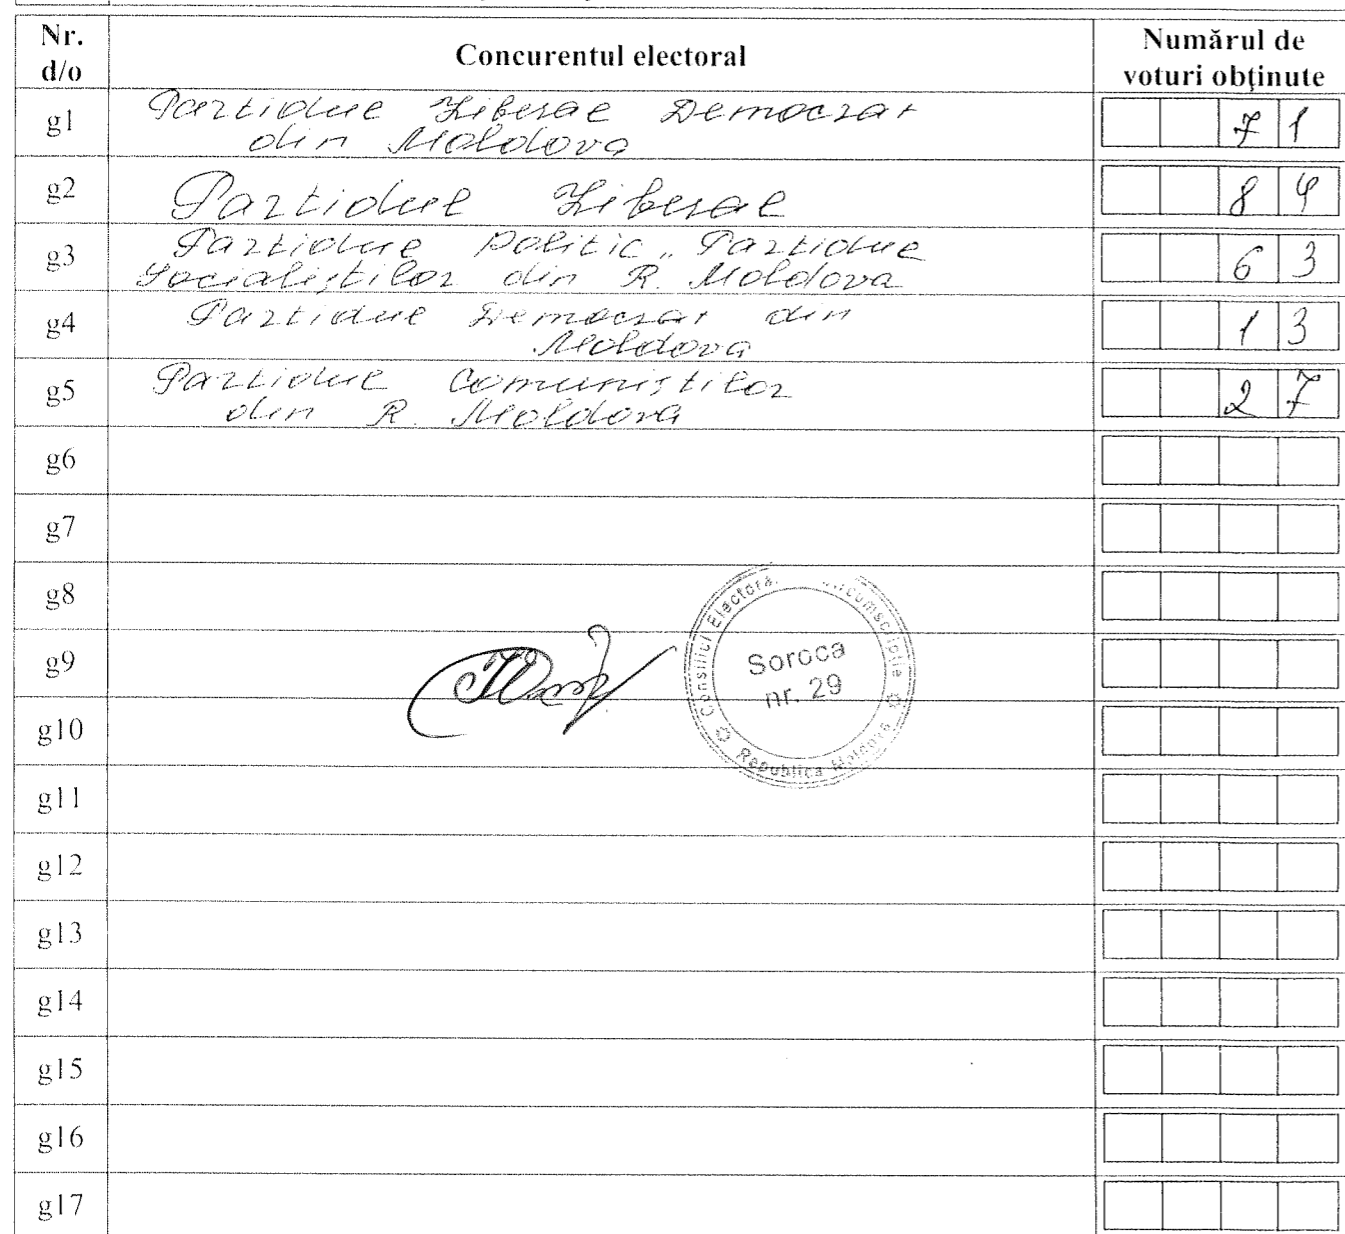 Nr. d/o Concurentul electoral Numărul de voturi obținute
g1 Partidul Liberal Democrat 71
din Moldova
g2 Partidul Liberal 84
g3 Partidul Politic „Partidul 63
Socialiștilor din R. Moldova
g4 Partidul Democrat din 13
Moldova
g5 Partidul Comuniștilor 27
din R. Moldova
g6
g7
g8
g9
g10
g11
g12
g13
g14
g15
g16
g17
Consiliul Electoral Circumscripție
Soroca
nr. 29
Republica Moldova